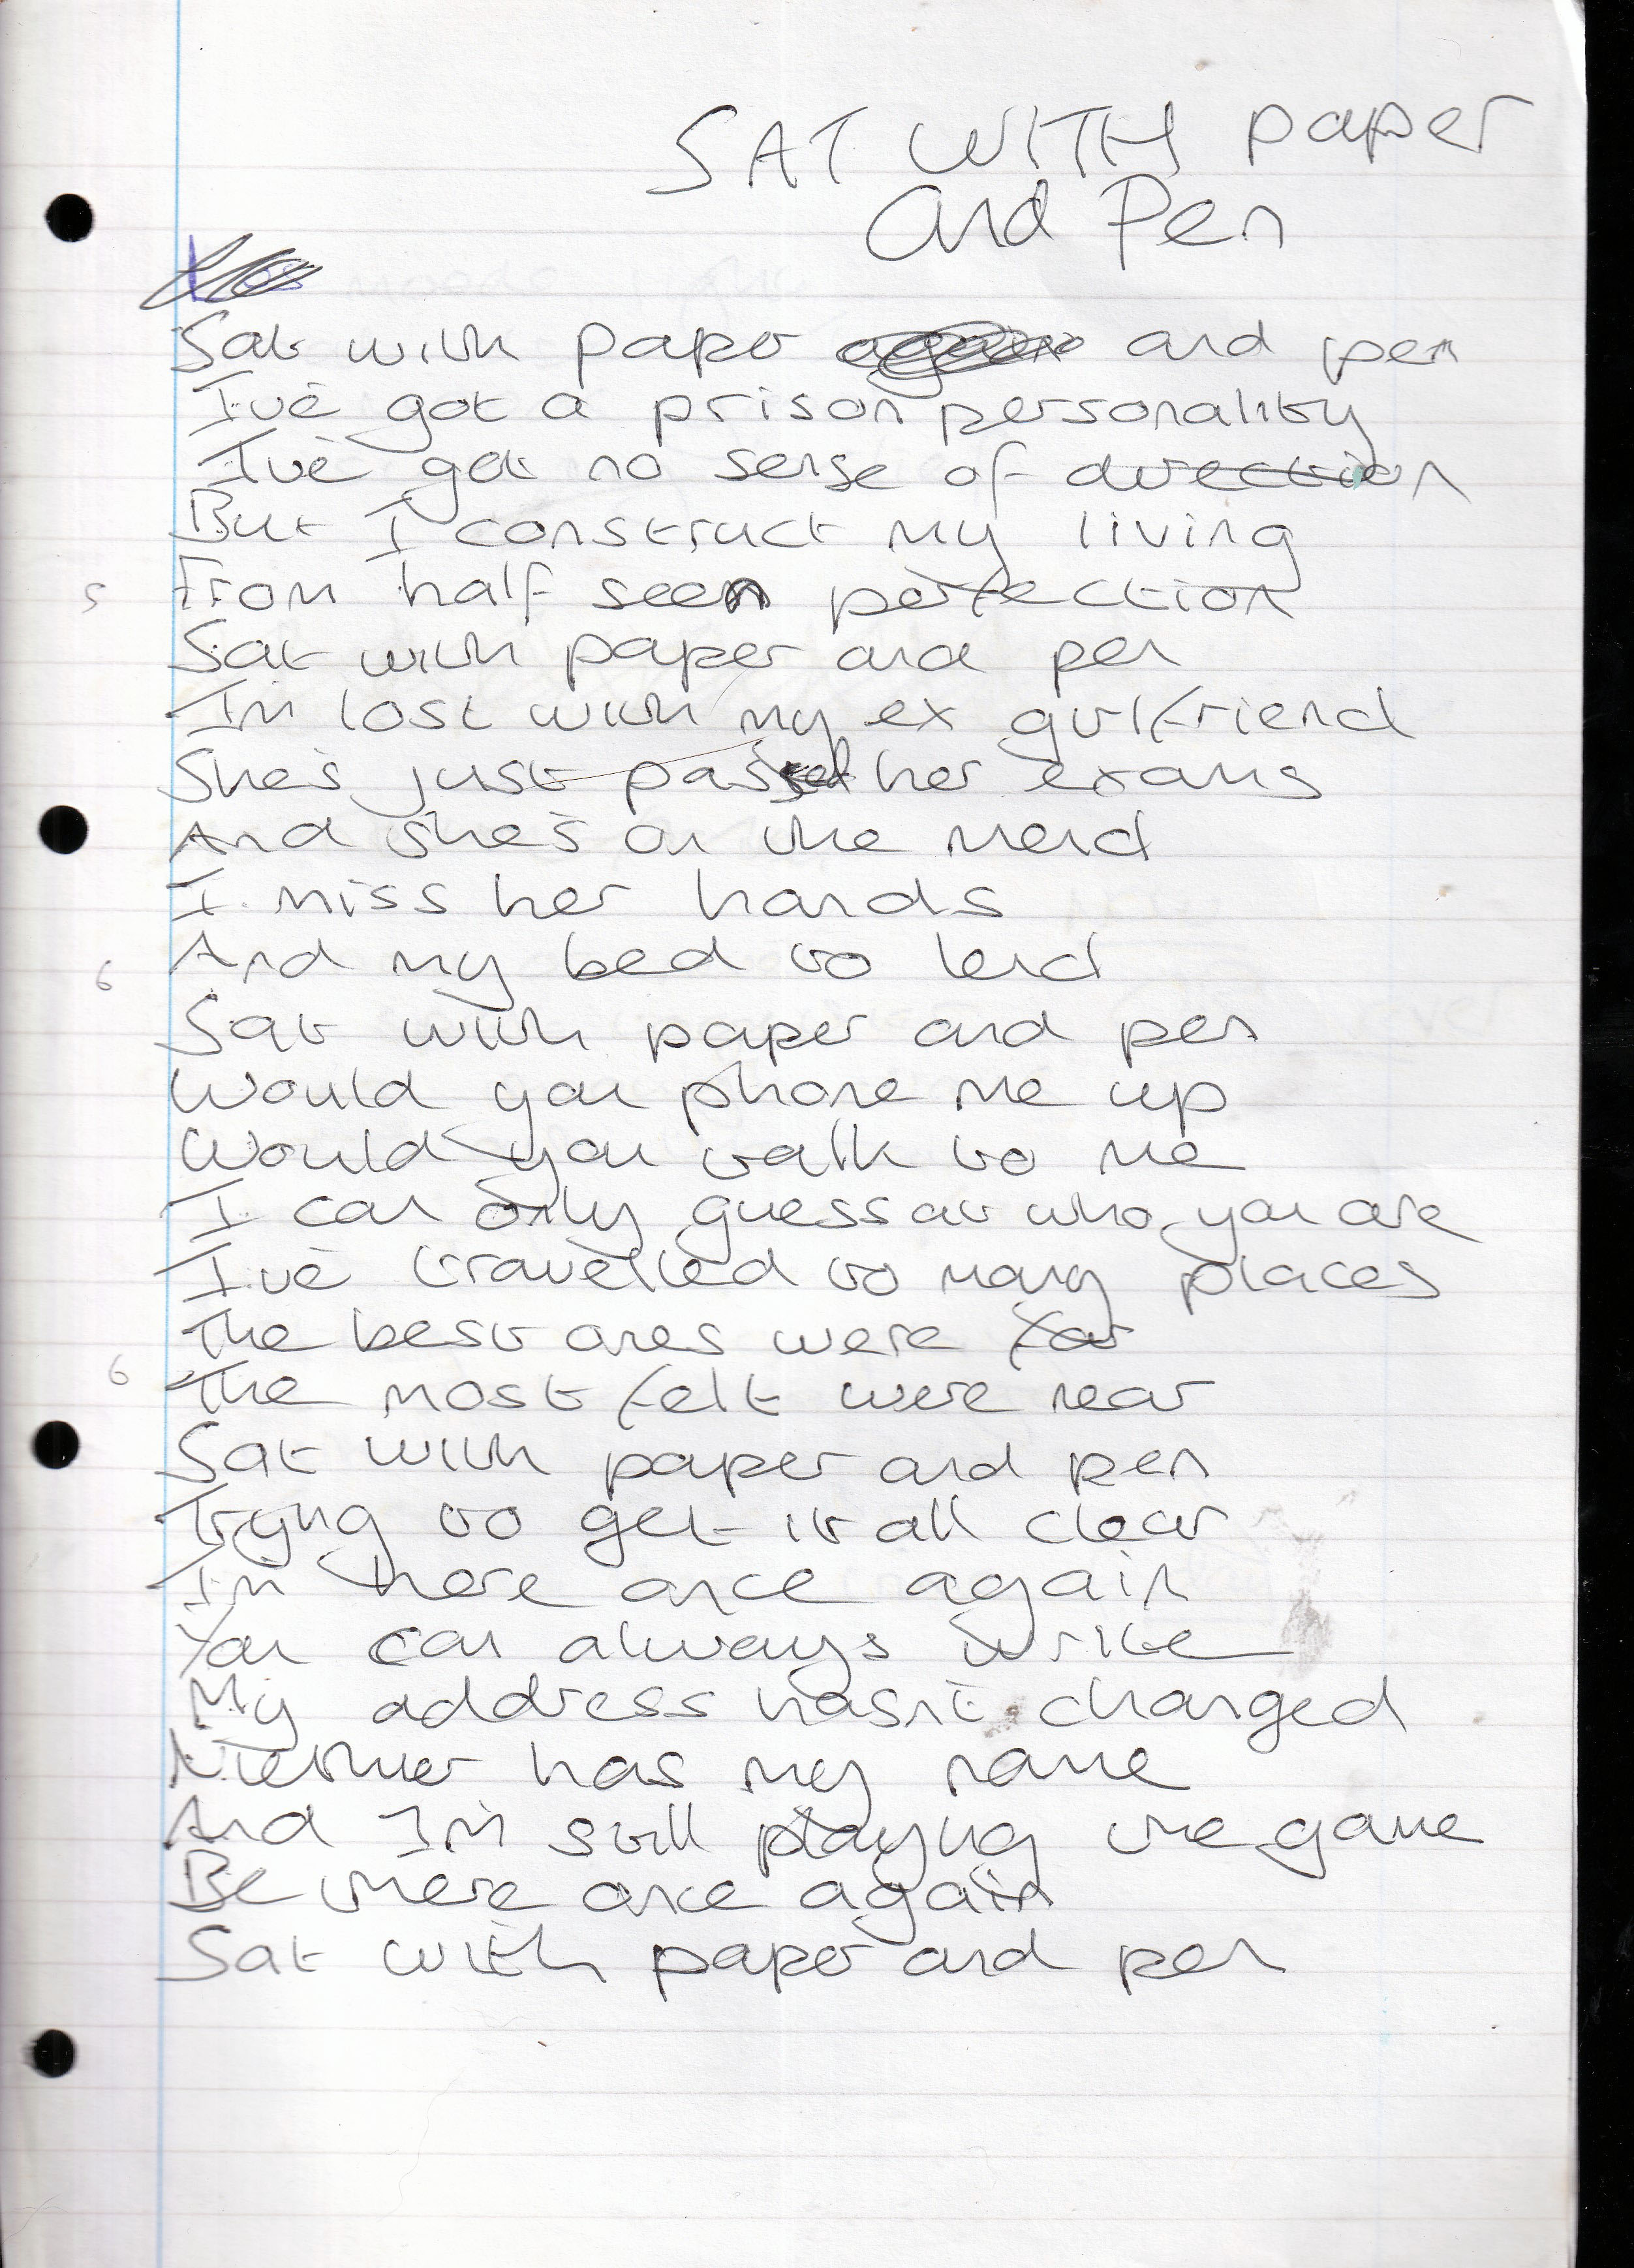 SAT WITH paper
and Pen
Sat with paper and pen
I've got a prison personality
I've got no sense of direction
But I construct my living
5 From half seen perfection
Sat with paper and pen
I'm lost with my ex girlfriend
She's just passed her exams
And she's on the mend
I miss her hands
6 And my bed to lend
Sat with paper and pen
Would you phone me up
Would you talk to me
I can only guess at who you are
I've travelled to many places
The best ones were far
6 The most felt were near
Sat with paper and pen
Trying to get it all clear
I'm here once again
You can always write
My address hasn't changed
Niether has my name
And I'm still playing the game
Be there once again
Sat with paper and pen